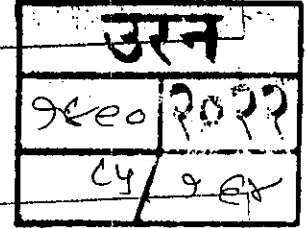 उरन
१८९० २०२२
८५ / १६४